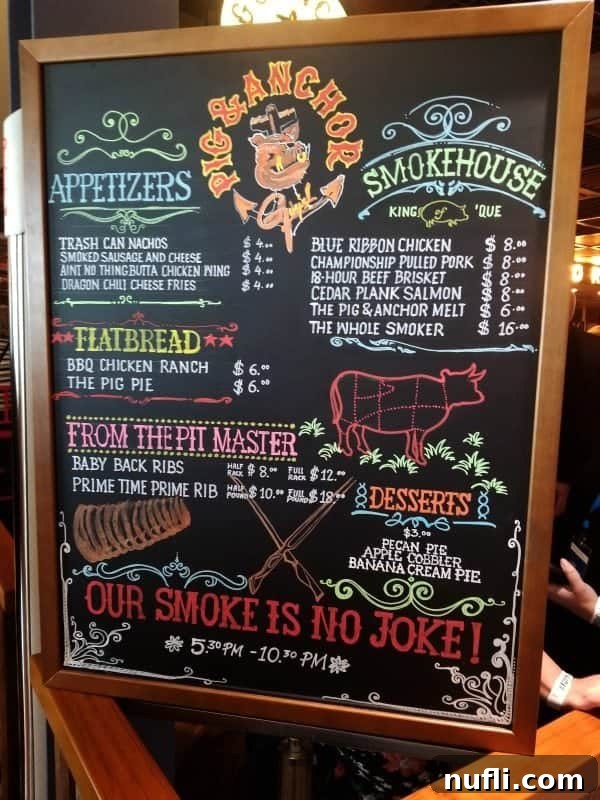 PIG & ANCHOR
Guy's!
APPETIZERS
TRASH CAN NACHOS $4.00
SMOKED SAUSAGE AND CHEESE $4.00
AINT NO THING BUTTA CHICKEN WING $4.00
DRAGON CHILI CHEESE FRIES $4.00
FLATBREAD
BBQ CHICKEN RANCH $6.00
THE PIG PIE $6.00
FROM THE PIT MASTER
BABY BACK RIBS HALF RACK $8.00 FULL RACK $12.00
PRIME TIME PRIME RIB HALF POUND $10.00 FULL POUND $18.00
SMOKEHOUSE
KING of 'QUE
BLUE RIBBON CHICKEN $8.00
CHAMPIONSHIP PULLED PORK $8.00
18-HOUR BEEF BRISKET $8.00
CEDAR PLANK SALMON $8.00
THE PIG & ANCHOR MELT $6.00
THE WHOLE SMOKER $16.00
DESSERTS
$3.00
PECAN PIE
APPLE COBBLER
BANANA CREAM PIE
OUR SMOKE IS NO JOKE!
5.30 PM - 10.30 PM
nufli.com